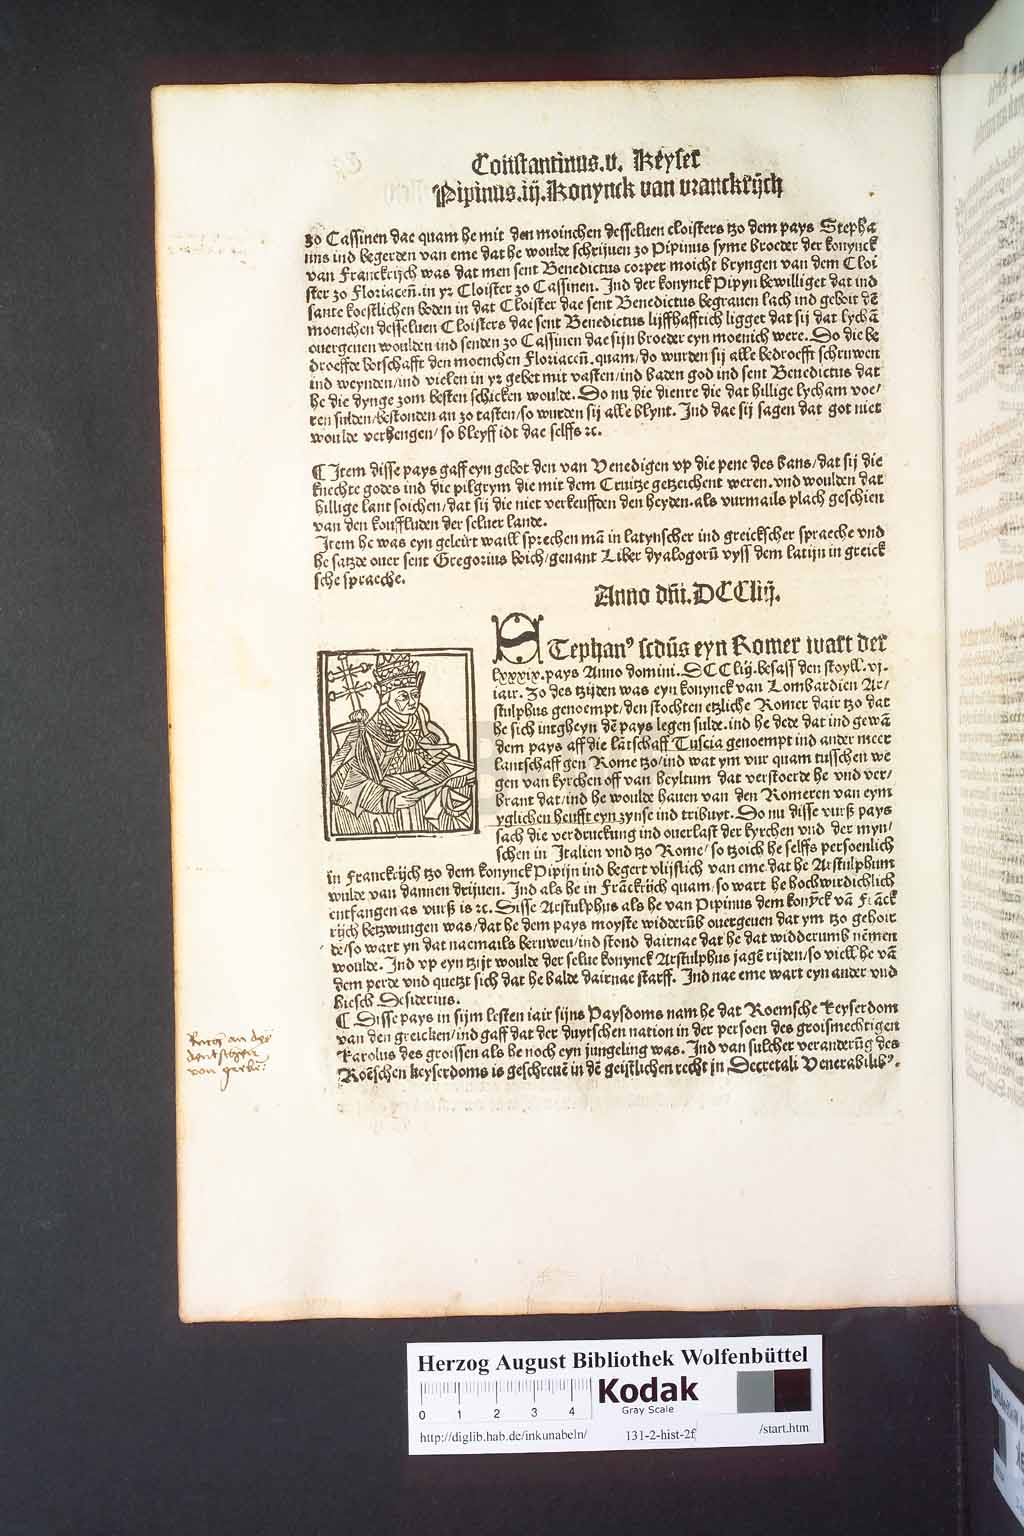 Constantinus.v. Keyser
Pipinus.iij.Konynck van vranckrijch
zo Cassinen dae quam he mit den moinchen desseluen cloisters tzo dem pays Stepha
nus ind begerden van eme dat he woulde schrijuen zo Pipinus syme broeder der konynck
van Franckrijch was dat men sent Benedictus corper moicht bryngen van dem Cloi
ster zo Floriaceñ.in yr Cloister zo Cassinen. Ind der konynck Pipyn bewilliget dat ind
sante koestlichen boden in dat Cloister dae sent Benedictus begrauen lach ind geboit dē
moenchen desseluen Cloisters dae sent Benedictus lijffhafftich ligget dat sij dat lychā
ouergeuen woulden ind senden zo Cassinen dae sijn broeder eyn moenich were. Do die be
droeffde botschafft den moenchen Floriaceñ.quam/do wurden sij alle bedroefft schruwen
ind weynden/ind vielen in yr gebet mit vasten/ind baden god ind sent Benedictus dat
he die dynge zom besten schicken woulde. Do nu die dienre die dat hillige lycham voe/
ren sulden/bestonden an zo tasten/so wurden sij alle blynt. Ind dae sij sagen dat got niet
woulde verhengen/so bleyff idt dae selffs ⁊c.
¶ Item disse pays gaff eyn gebot den van Venedigen vp die pene des bans/dat sij die
knechte godes ind die pilgrym die mit dem Cruitze getzeichent weren.vnd woulden dat
hillige lant soichen/dat sij die niet verkeufften den heyden.als vurmails plach geschien
van den kouffluden der seluer lande.
Item he was eyn geleirt waill sprechen mā in latynscher ind greickscher spraeche vnd
he satzde ouer sent Gregorius boich/genant Liber dyalogorū vyss dem latijn in greick
sche spraeche.
Anno dñi.DCCliij.
STephan⁹ scdūs eyn Romer wart der
lxxxix.pays Anno domini.DCCliij.besass den stoyll.vj.
iair. Zo des tzijden was eyn konynck van Lombardien Ar/
stulphus genoempt/den stochten etzliche Romer dair tzo dat
he sich intgheyn dē pays legen sulde.ind he dede dat ind gewā
dem pays aff die lātschaff Tuscia genoempt ind ander meer
lantschaff gen Rome tzo/ind wat ym vur quam tusschen we
gen van kyrchen off van heyltum dat verstoerde he vnd ver/
brant dat/ind he woulde hauen van den Romeren van eym
yglichen heufft eyn zynse ind tribuyt. Do nu disse vurß pays
sach die verdruckung ind ouerlast der kyrchen vnd der myn/
schen in Italien vnd tzo Rome/so tzoich he selffs persoenlich
in Franckrijch tzo dem konynck Pipijn ind begert vlijslich van eme dat he Arstulphum
wulde van dannen drijuen. Ind als he in Frāckrijch quam/so wart he hochwirdichlich
entfangen as vurß is ⁊c. Disse Arstulphus als he van Pipinus dem konȳck vā Frāck
rijch betzwungen was/dat he dem pays moyste widderūb ouergeuen dat ym tzo gehoir
de/so wart yn dat naemails beruwen/ind stond dairnae dat he dat widderumb nēmen
woulde. Ind vp eyn tzijt woulde der selue konynck Arstulphus jagē rijden/so viell he vā
dem perde vnd quetzt sich dat he balde dairnae starff. Ind nae eme wart eyn ander vnd
hiesch Desiderius.
¶ Disse pays in sijm lesten iair sijns Paysdoms nam he dat Roemsche keyserdom
van den greicken/ind gaff dat der duytschen nation in der persoen des groismechtigen
Karolus des groissen als he noch eyn jungeling was. Ind van sulcher veranderūg des
Roēschen keyserdoms is geschreuē in dē geistlichen recht in Decretali Venerabilib⁹.
an des
von
Herzog August Bibliothek Wolfenbüttel
0 1 2 3 4
Kodak
Gray Scale
http://diglib.hab.de/inkunabeln/ 131-2-hist-2f /start.htm